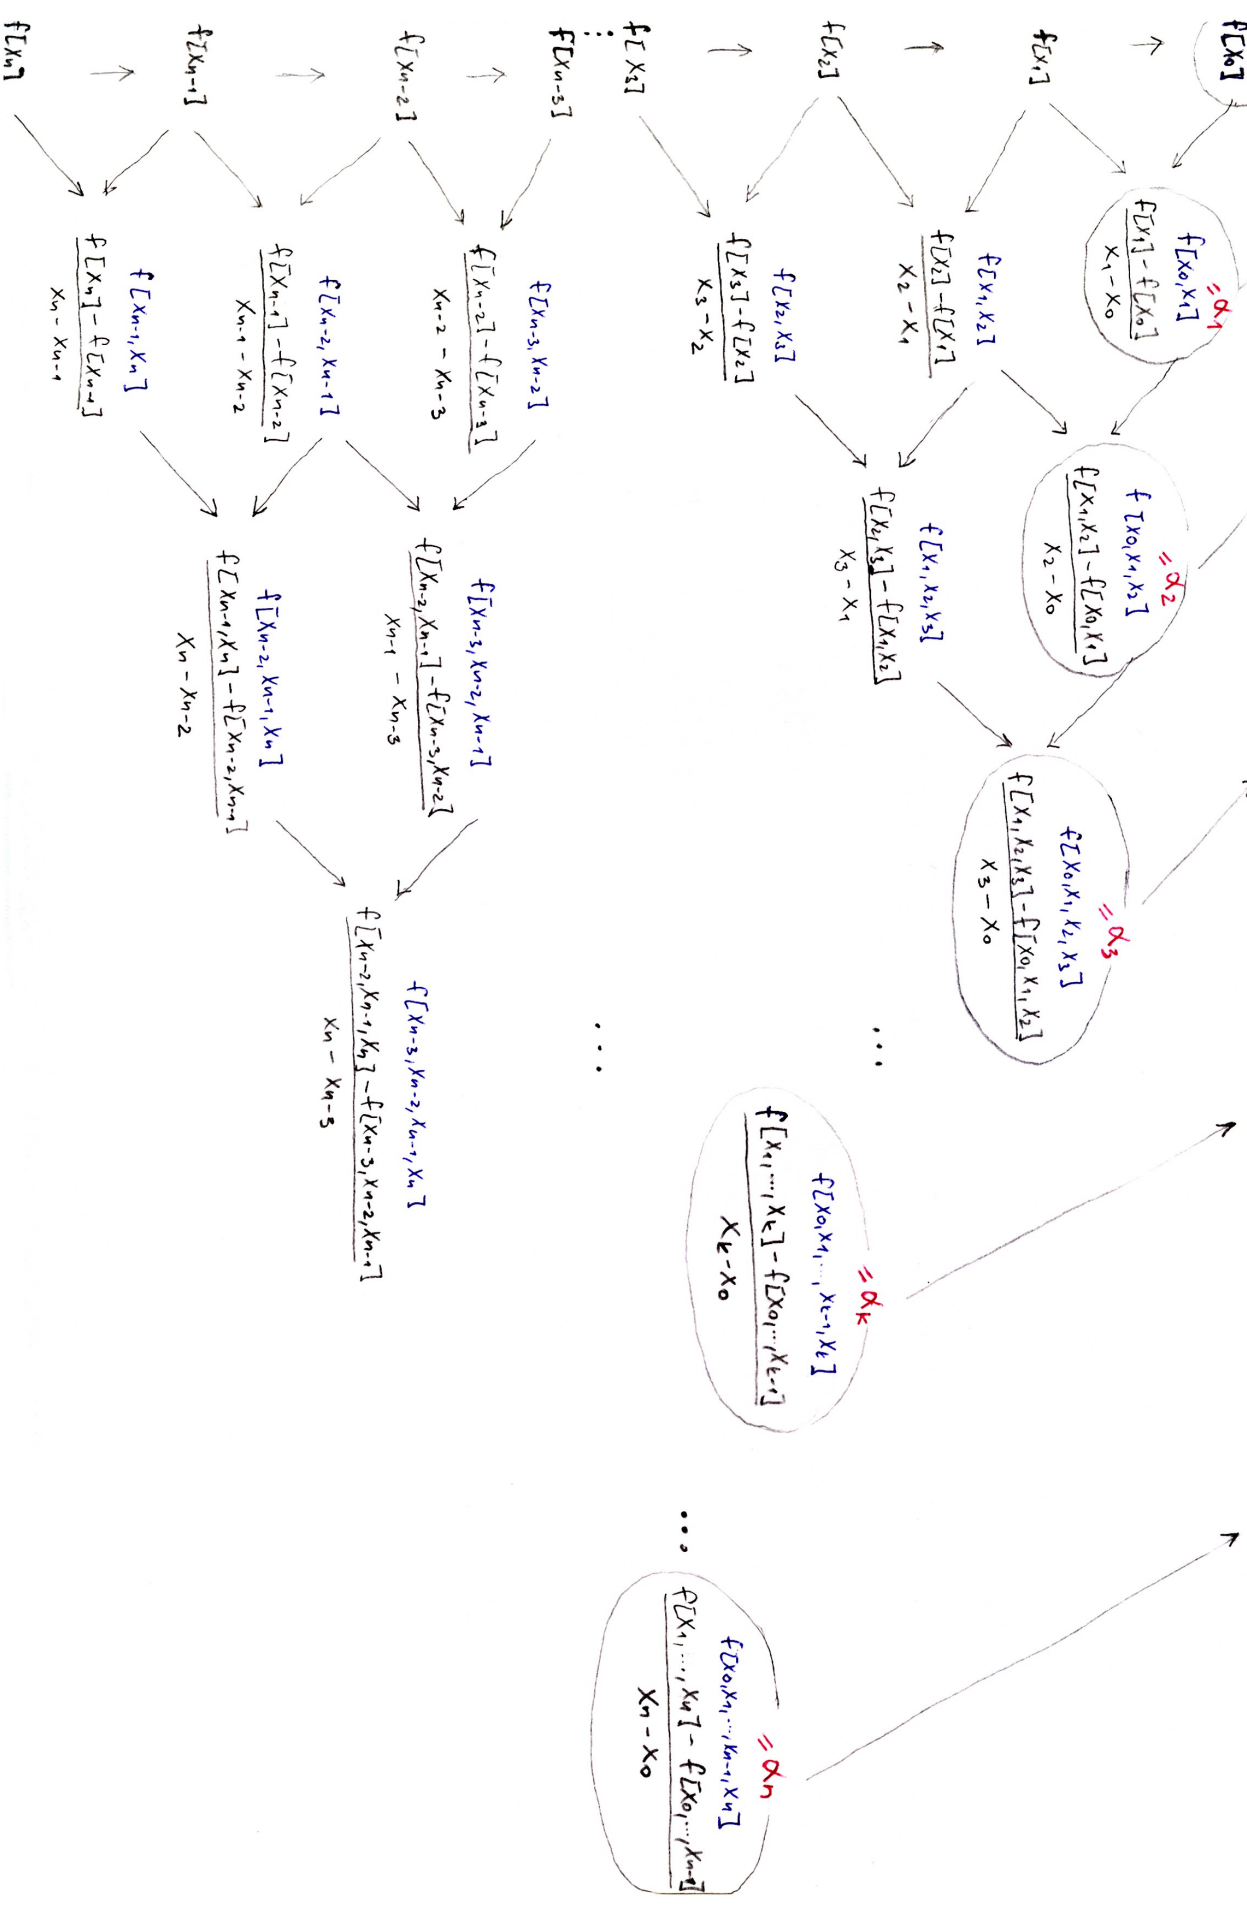 f[x₀]
→
f[x₁]
→
f[x₂]
→
f[x₃]
⋮
f[xₙ₋₃]
→
f[xₙ₋₂]
→
f[xₙ₋₁]
→
f[xₙ]
= α₁
f[x₀,x₁]
f[x₁] - f[x₀]
x₁ - x₀
f[x₁,x₂]
f[x₂] - f[x₁]
x₂ - x₁
f[x₂,x₃]
f[x₃] - f[x₂]
x₃ - x₂
f[xₙ₋₃,xₙ₋₂]
f[xₙ₋₂] - f[xₙ₋₃]
xₙ₋₂ - xₙ₋₃
f[xₙ₋₂,xₙ₋₁]
f[xₙ₋₁] - f[xₙ₋₂]
xₙ₋₁ - xₙ₋₂
f[xₙ₋₁,xₙ]
f[xₙ] - f[xₙ₋₁]
xₙ - xₙ₋₁
= α₂
f[x₀,x₁,x₂]
f[x₁,x₂] - f[x₀,x₁]
x₂ - x₀
f[x₁,x₂,x₃]
f[x₂,x₃] - f[x₁,x₂]
x₃ - x₁
f[xₙ₋₃,xₙ₋₂,xₙ₋₁]
f[xₙ₋₂,xₙ₋₁] - f[xₙ₋₃,xₙ₋₂]
xₙ₋₁ - xₙ₋₃
f[xₙ₋₂,xₙ₋₁,xₙ]
f[xₙ₋₁,xₙ] - f[xₙ₋₂,xₙ₋₁]
xₙ - xₙ₋₂
= α₃
f[x₀,x₁,x₂,x₃]
f[x₁,x₂,x₃] - f[x₀,x₁,x₂]
x₃ - x₀
f[xₙ₋₃,xₙ₋₂,xₙ₋₁,xₙ]
f[xₙ₋₂,xₙ₋₁,xₙ] - f[xₙ₋₃,xₙ₋₂,xₙ₋₁]
xₙ - xₙ₋₃
...
...
= αₖ
f[x₀,x₁,...,xₖ₋₁,xₖ]
f[x₁,...,xₖ] - f[x₀,...,xₖ₋₁]
xₖ - x₀
...
= αₙ
f[x₀,x₁,...,xₙ₋₁,xₙ]
f[x₁,...,xₙ] - f[x₀,...,xₙ₋₁]
xₙ - x₀